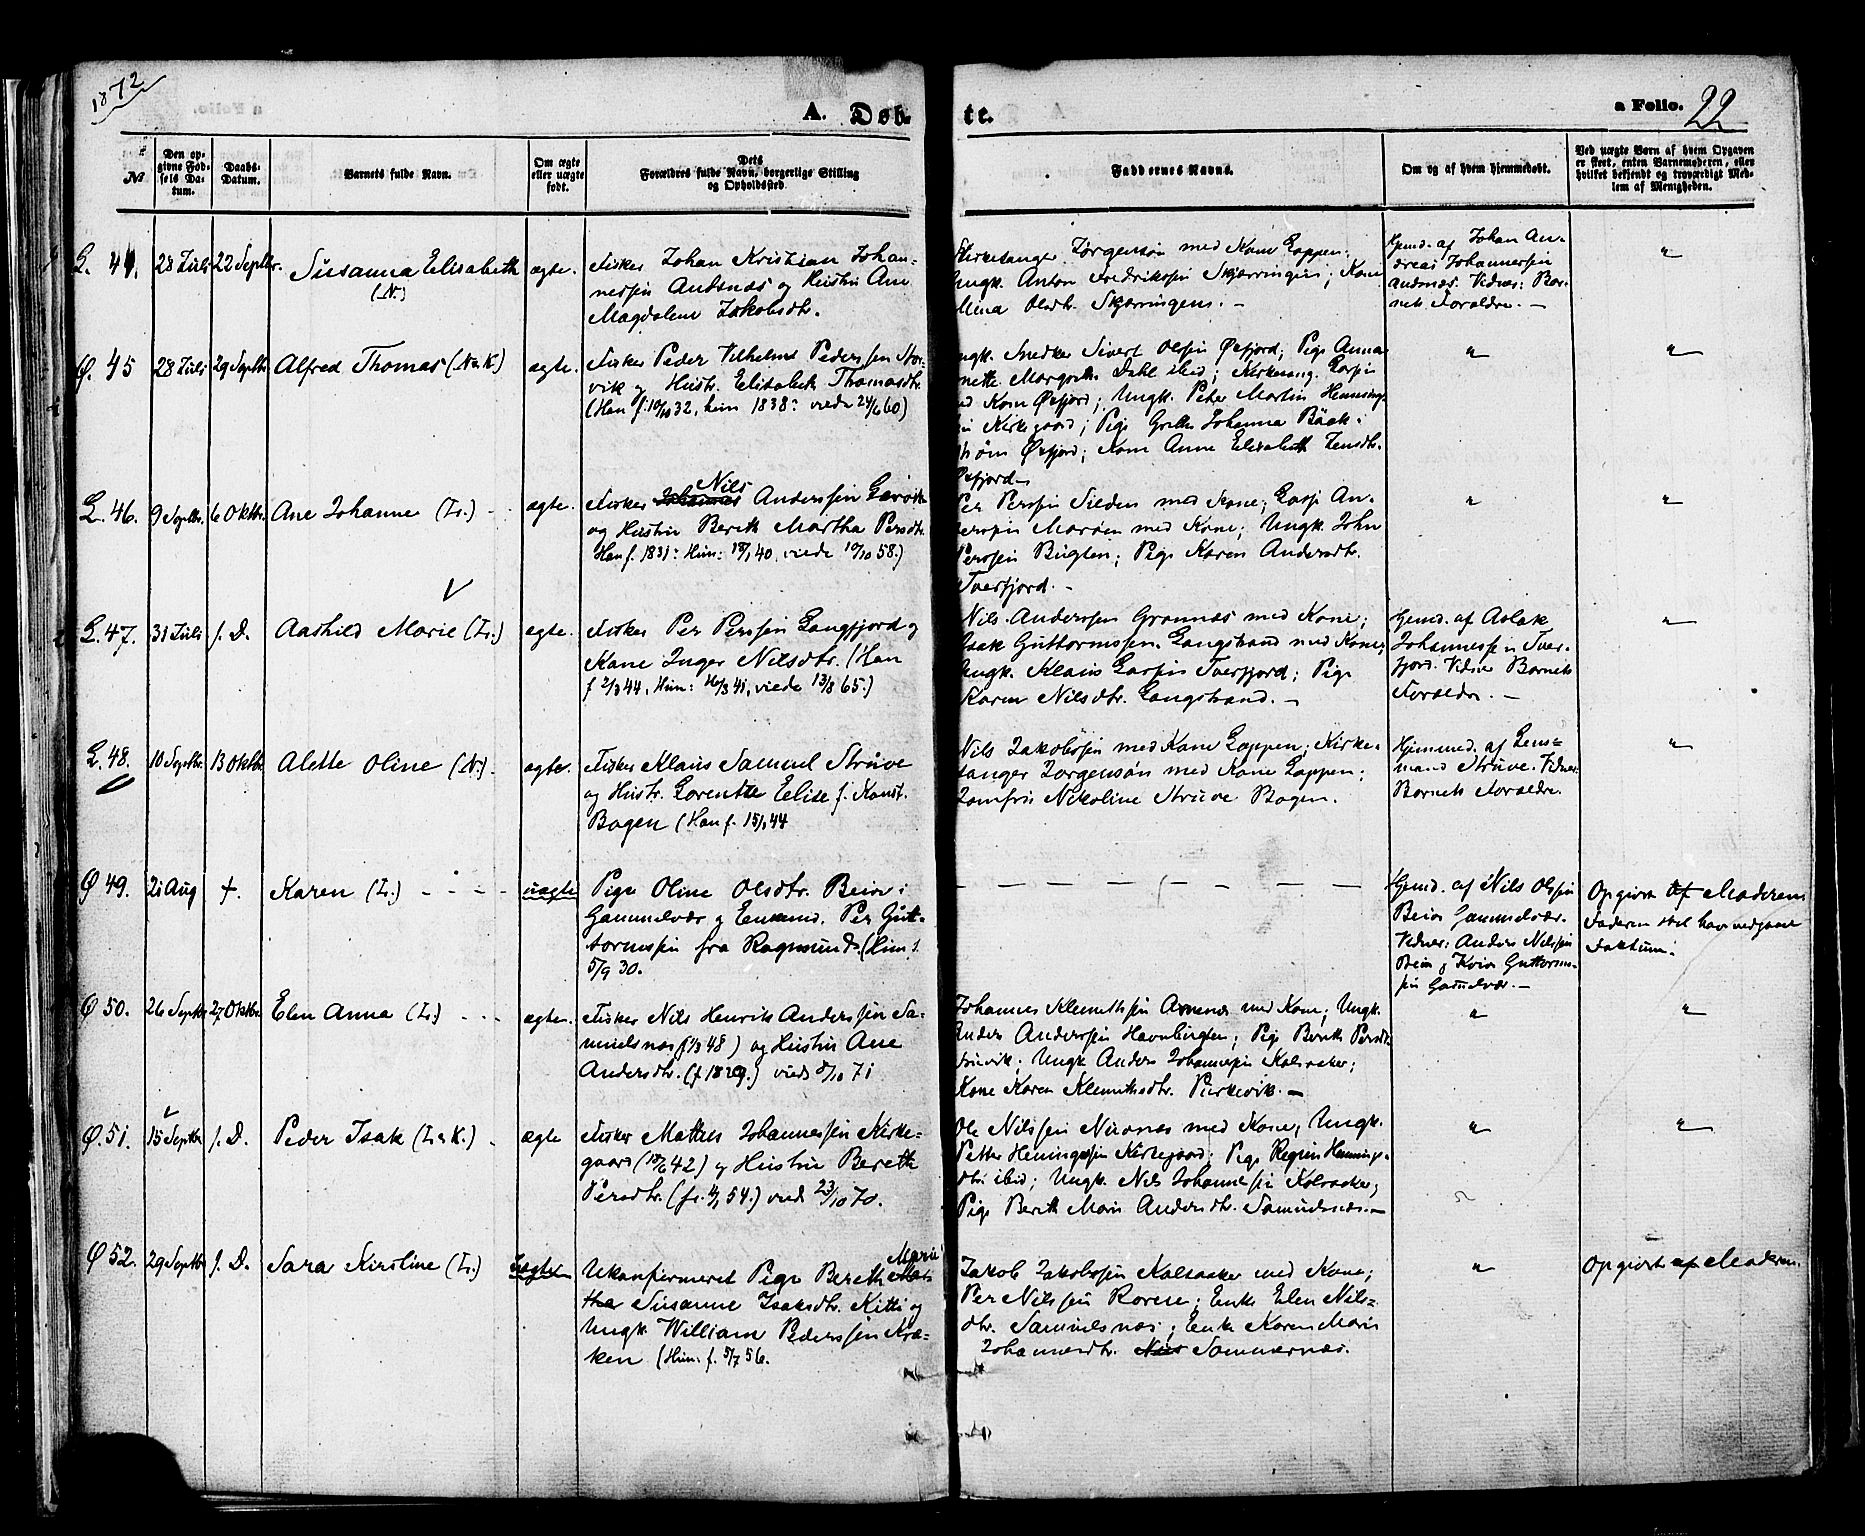 1872
A. Døb-
te.
a Folio. 22
№
Den op-
givne Fød-
sels Da-
tum.
Daabs-
Datum.
Barnets fulde Navn.
Om ægte
eller uægte
født.
Dets
Forældres fulde Navn, borgerlige Stilling
og Opholdssted.
Faddernes Navne.
Om og af hvem hjemmedøbt.
Ved uægte Børn af hvem Opgaven
er skeet, enten Barnemoderen, eller
hvilket bekjendt og troværdigt Med-
lem af Menigheden.
L. 44. 28 Juli 22 Septbr. Susanna Elisabeth
(N.)
ægte.
Fisker Johan Kristian Johan-
nessen Andsnæs og Hustru Ane
Magdalene Jakobsdtr.
Kirkesanger Jørgensøn med Kone Loppen;
Ungk. Anton Fredriksen Skjærvingen; Kone
Mina Olsdtr. Skjærvingen. -
Hjmd. af Johan An-
dreas Johannessen
Andsnæs. Vidner: Bar-
nets Forældre. -
"
Ø. 45 28 Juli 29 Septbr Alfred Thomas (N & K)
ægte.
Fisker Peder Vilhelm Pederssen Stor-
vik og Hustr. Elisabeth Thomasdtr.
(Han f. 10/10 32, hun 1838: viede 24/6 60)
Ungk. Snedker Sivert Olsen Øxfjord; Pige Anna
nette Margrethe Dahl ibid; Kirkesang. Larsen
med Kone Øxfjord; Ungk. Peter Martin Henning-
sen Kirkegaard; Pige Grethe Johanna Bäck-
strøm Øxfjord; Kone Anne Elisabeth Jensdtr.
Øxfjord -
" "
L. 46. 9 Septbr. 6 Oktbr. Ane Johanne (L.) - -
ægte.
Nils
Fisker Johannes Anderssen Lervik
og Hustru Bereth Martha Persdtr.
Han f. 1831: Hun: 18/1 40, viede 10/10 58.)
Per Perssen Silden med Kone; Lars An-
derssen Marøen med Kone; Ungk. John
Perssen Bugten; Pige Karen Andersdtr.
Tverfjord. -
" "
L. 47. 31 Juli s. D. Aashild Marie (L.)
ægte.
Fisker Per Perssen Langfjord og
Kone Inger Nilsdtr. (Han
f 2/3 44, Hun: 16/3 41, viede 13/8 65.)
Nils Anderssen Grannæs med Kone;
Isak Guttormssen Langstrand med Kone;
Ungk. Klaus Larssen Tverfjord; Pige
Karen Nilsdtr. Langstrand. -
Hjmd. af Aslak
Johannessen Tver-
fjord. Vidner Barnets
Forældre. -
"
L. 48. 10 Septbr. 13 Oktbr Alette Oline (N.).
ægte.
Fisker Klaus Samuel Strüve
og Hustr. Lorentze Elise f. Konst.
Bogen (Han f. 15/1 44
Nils Jakobsen med Kone Loppen; Kirke-
sanger Jørgensøn med Kone Loppen;
Jomfru Nikoline Strüve Bogen.
Hjemmed. af Lens-
mand Strüve. Vidner
Barnets Forældre.
"
Ø 49. 21 Aug +. Karen (L.) - - - -
uægte
Pige Oline Olsdtr. Beior i
Gammelvær og Enkemd. Per Gut-
tormssen fra Rognsund. (Hun f.
5/9 30.
- - - - - - - -
Hjmd. af Nils Olssen
Beior Gammelvær.
Vidner: Anders Nilssen
Beior & Kvia Guttorms-
sen Gamelvær. -
Opgivet af Moderen
Faderen skal have vedgaaet
Faktum.
Ø 50. 26 Septbr 27 Oktbr. Elen Anna (L.) - - -
ægte.
Fisker Nils Henrik Anderssen Sa-
muelsnæs (f 1/3 48) og Hustru Ane
Andersdtr. (f 1829.) viede 8/10 71
Johannes Klemetssen Arnenæs med Kone; Ungk.
Anders Anderssen Havnbugten; Pige Bereth Persdtr
Ungk. Anders Johannessen Kolvaaker;
Kone Karen Klemetsdtr. -
" "
Ø. 51. 15 Septbr s. D. Peder Isak (L & K.) -
ægte
Fisker Mathis Johannessen Kirke-
gaard (18/6 42) og Hustru Bereth
Persdtr. (f. 4/1 54.) viede 23/10 70.
Ole Nilssen Nuvnæs med Kone; Ungk.
Petter Henningssen Kirkegaard; Pige Regine Hennings-
dtr. ibid; Ungk. Nils Johannessen Kolvaaker;
Pige Bereth Marie Andersdtr. Samuelsnæs. -
" "
Ø 52. 29 Septbr s. D. Sara Kirstine (L.)
Uægte
Marie
Ukonfirmeret Pige Bereth Mar-
tha Susanne Isaksdtr. Kitti og
Ungk. William Pederssen Kra-
ken (Hun: f. 5/7 56.
Jakob Jakobssen Kolvaaker med Kone;
Per Nilssen Roren; Enke Elen Nils-
dtr. Samuelsnæs; Enke Karen Marie
Johannesdtr. Nus Sommernæs.
"
Opgivet af Moderen.